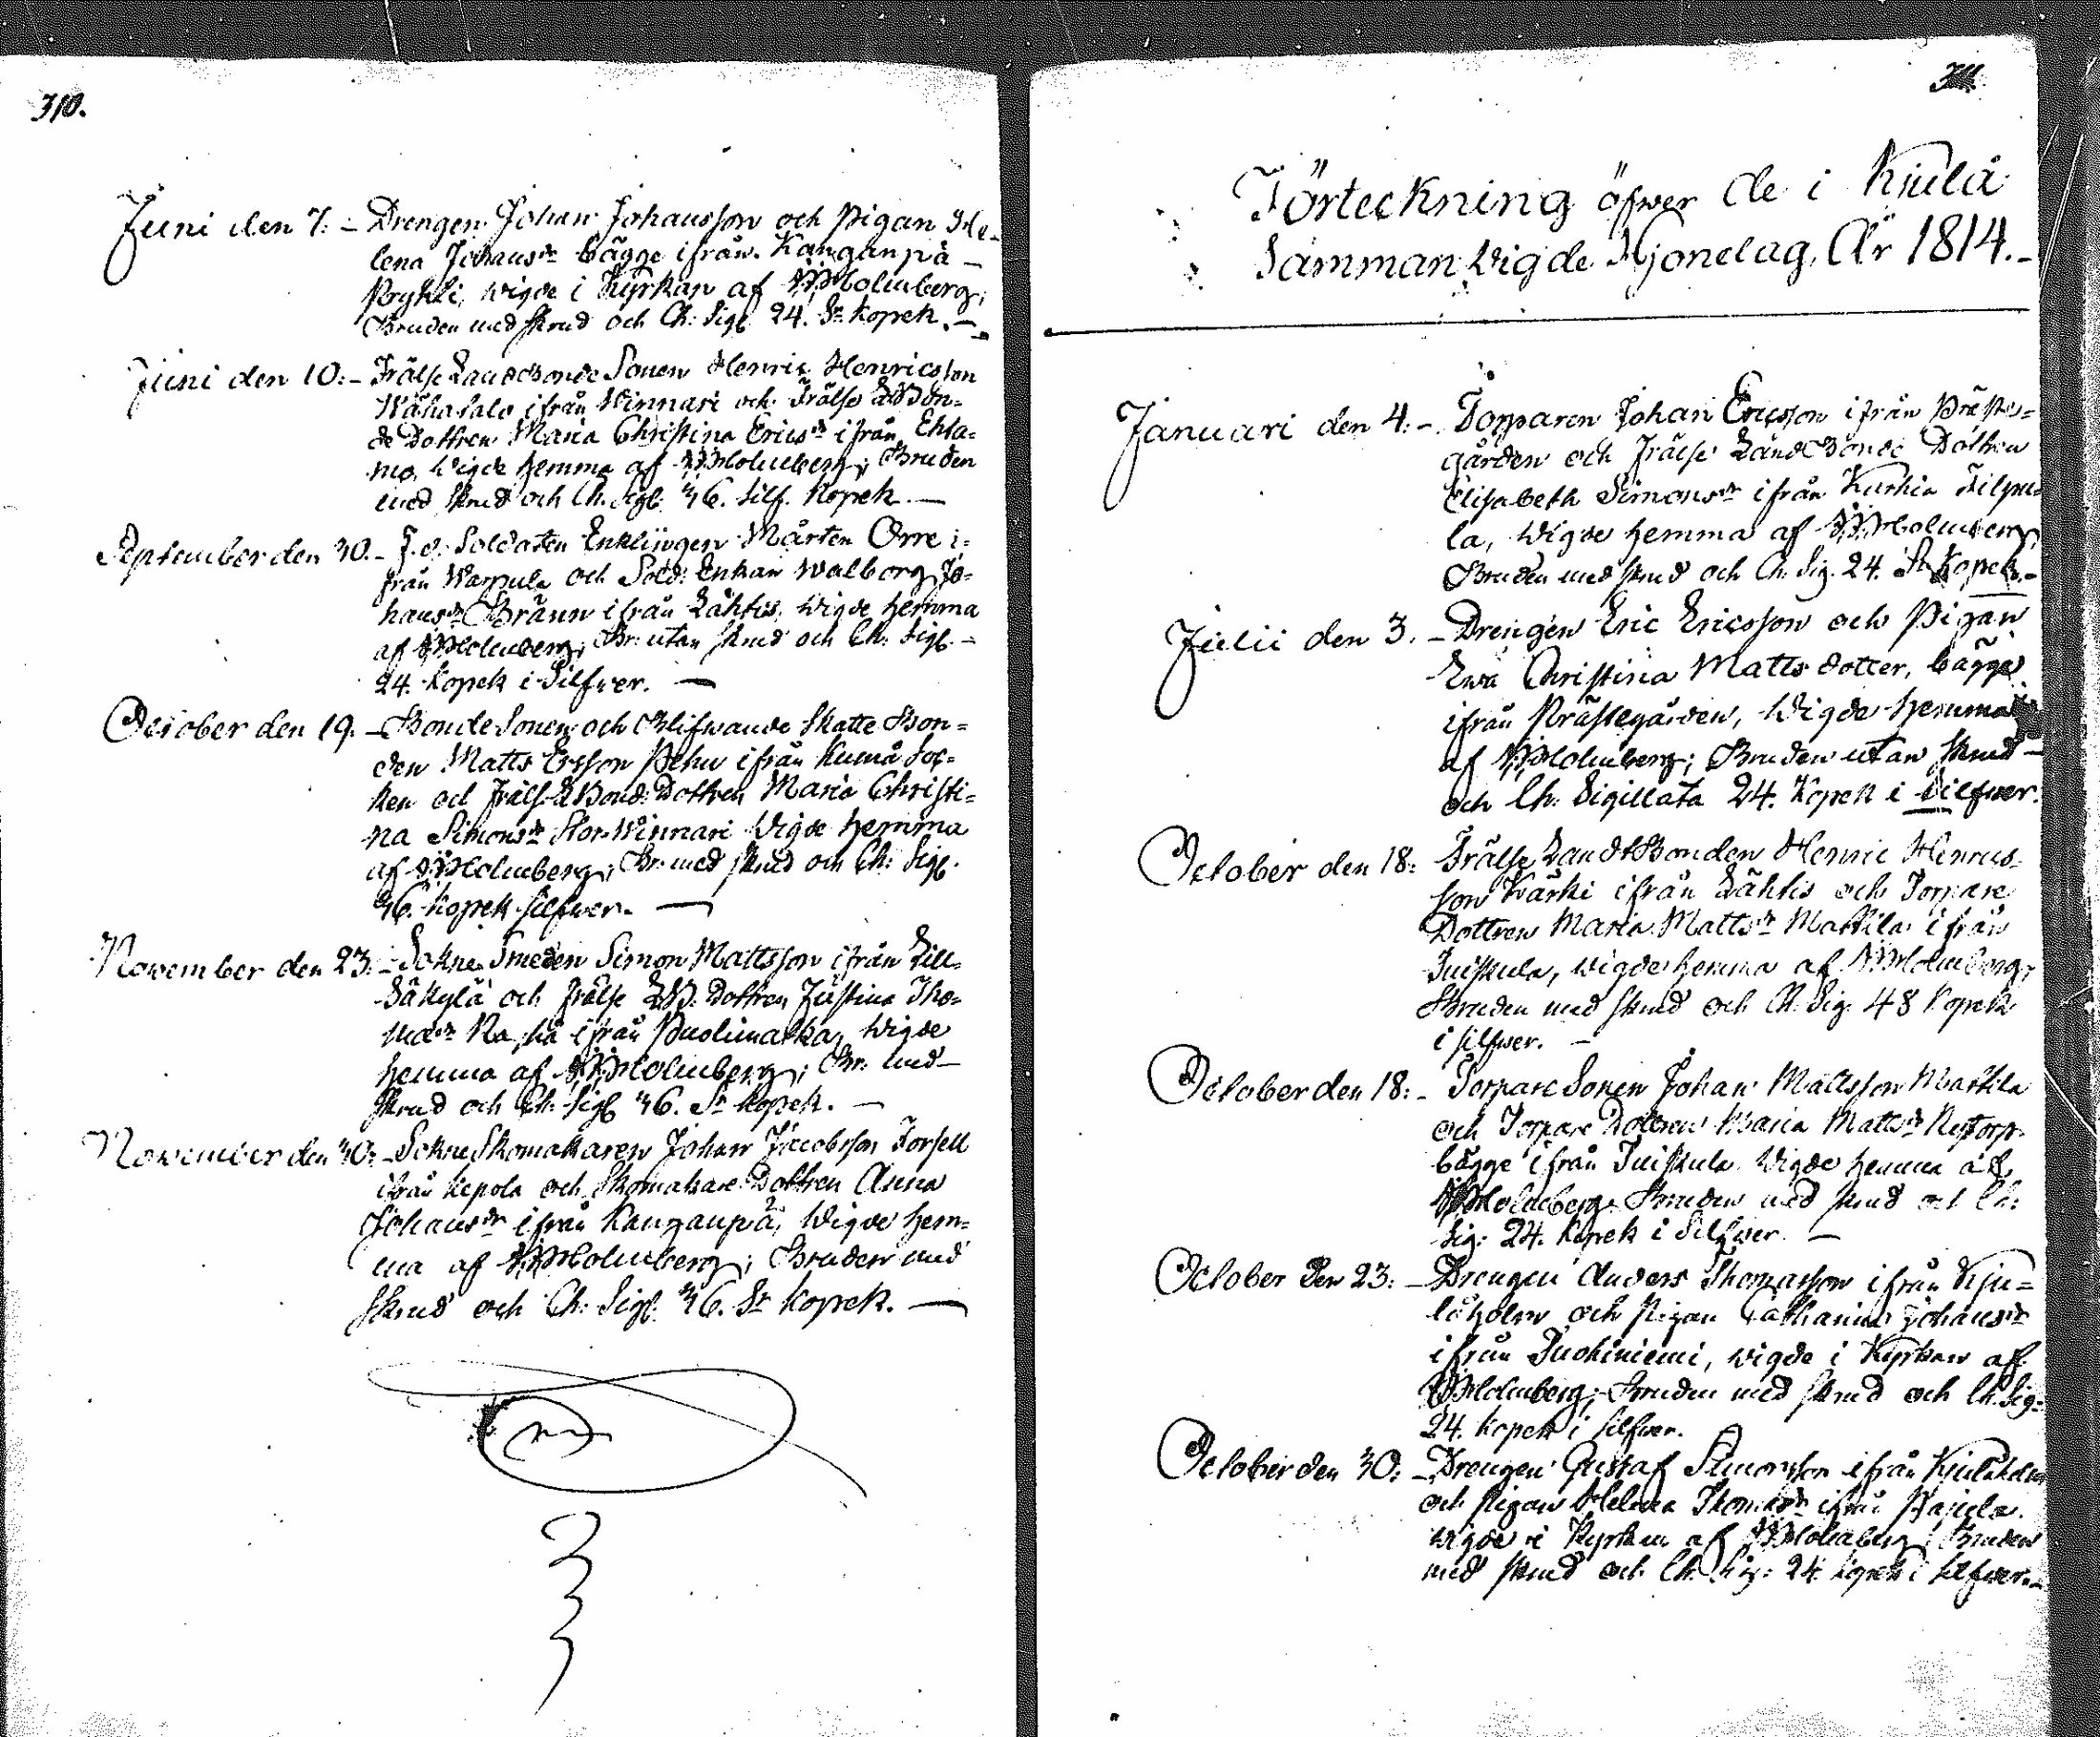 310.
Juni den 7. – Drengen Johan Johansson och Pigan He-
lena Johansdr bägge ifrån Kanganpä –
Prykli, wigde i Kyrkan af Holmberg;
Bruden med skrud och Ch: Sigl. 24. Sr Kopek. –
Juni den 10. – Frälse LandBonde Sonen Henric Henricsson
Wähasalo ifrån Winnari och Frälse LBon-
de Dottren Maria Christina Ericsdr ifrån Ehta-
mo, Wigde hemma af Holmberg; Bruden
med skrud och Ch. Sigl. 36. Silf. Kopek. –
September den 30. – F.d. Soldaten Enklingen Mårten Orre i-
från Warpula och Sold: Enkan Walborg Jo-
hansdr Bränn ifrån Lähtis, Wigde hemma
af Holmberg; Br: utan skrud och Ch: Sigl. –
24. Kopek i Silfwer. –
October den 19. – Bonde Sonen och Blifwande Skatte Bon-
den Matts Ersson Pehu ifrån Kumå Soc-
ken och Frälse LBond: Dottren Maria Christi-
na Simonsdr Stor-Winnari Wigde hemma
af Holmberg; Br: med skrud och Ch: Sigl.
36. Kopek silfwer. –
November den 23. – Sokne Smeden Simon Mattsson ifrån Lill-
Säkylä och Frälse LB. Dottren Justina Tho-
masdr ifrån Puolimatka, Wigde
hemma af Holmberg; Br. med –
skrud och Ch. Sigl 36. Sr Kopek. –
November den 30. – Sokne Skomakaren Johan Jacobsson Forsell
ifrån Kepola och Skomakare Dottren Anna
Johansdr ifrån Kanganpä, Wigde hem-
ma af Holmberg; Bruden med
skrud och Ch: Sigl. 36. Sr Kopek. –
311.
Förteckning öfwer de i Kiulå
Samman Wigde Hjonelag, År 1814. –
Januari den 4. – Torparen Johan Ericsson ifrån Präste-
gården och Frälse LandBonde Dottren
Elisabeth Simonsdr ifrån Kurkia Filpu-
la, Wigde hemma af Holmberg,
Bruden med skrud och Ch. Sig. 24. Sr Kopek. –
Julii den 3. – Drengen Eric Ericsson och Pigan
Ewa Christina Matts dotter, bägge
ifrån Prästegården, Wigde hemma
af Holmberg; Bruden utan skrud –
och Ch: Sigillata 24. Kopek i Silfwer.
October den 18: Frälse LandtBonden Henric Henrics-
son Kärki ifrån Lähtis och Torpare
Dottren Maria Mattsdr Mattila ifrån
Juiskula, wigde hemma af Holmberg;
Bruden med skrud och Ch. Sig. 48 Kopek
i silfwer. –
October den 18: – Torpare Sonen Johan Mattsson Mattila
och Torpare Dottren Maria Mattsdr Nytorp
bägge ifrån Juiskula Wigde hemma af
Holmberg, Bruden med skrud och Ch:
Sig. 24. Kopek i Silfwer. –
October den 23: – Drengen Anders Thomasson ifrån Kju-
loholm och Pigan Catharina Johansdr
ifrån Juokiniemi, wigde i Kyrkan af
Holmberg, Bruden med skrud och Ch. Sig:
24. Kopek i silfwer.
October den 30: – Drengen Gustaf Simonsson ifrån Kjuloholm
och Pigan Helena Thomasdr ifrån
wigde i Kyrkan af Holmberg; Bruden
med skrud och Ch. Sig: 24. Kopek i silfwer. –